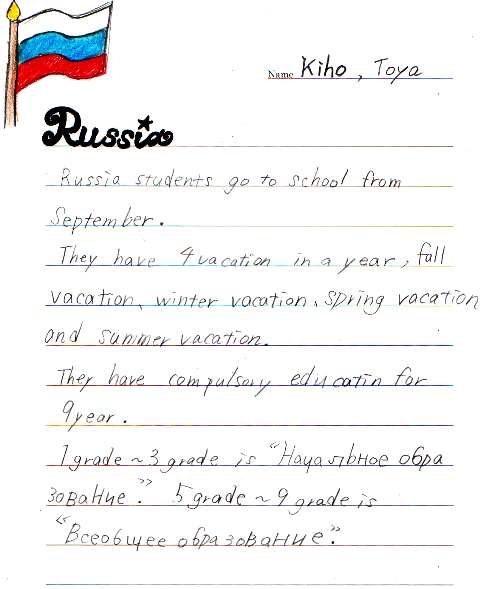 Name Kiho, Toya
Russia
Russia students go to school from
September.
They have 4 vacation in a year, fall
vacation, winter vacation, spring vacation
and summer vacation.
They have compulsory educatin for
9 year.
1 grade ~ 3 grade is "Науалявное обра
зование". 5 grade ~ 9 grade is
"Всеобщее образование".